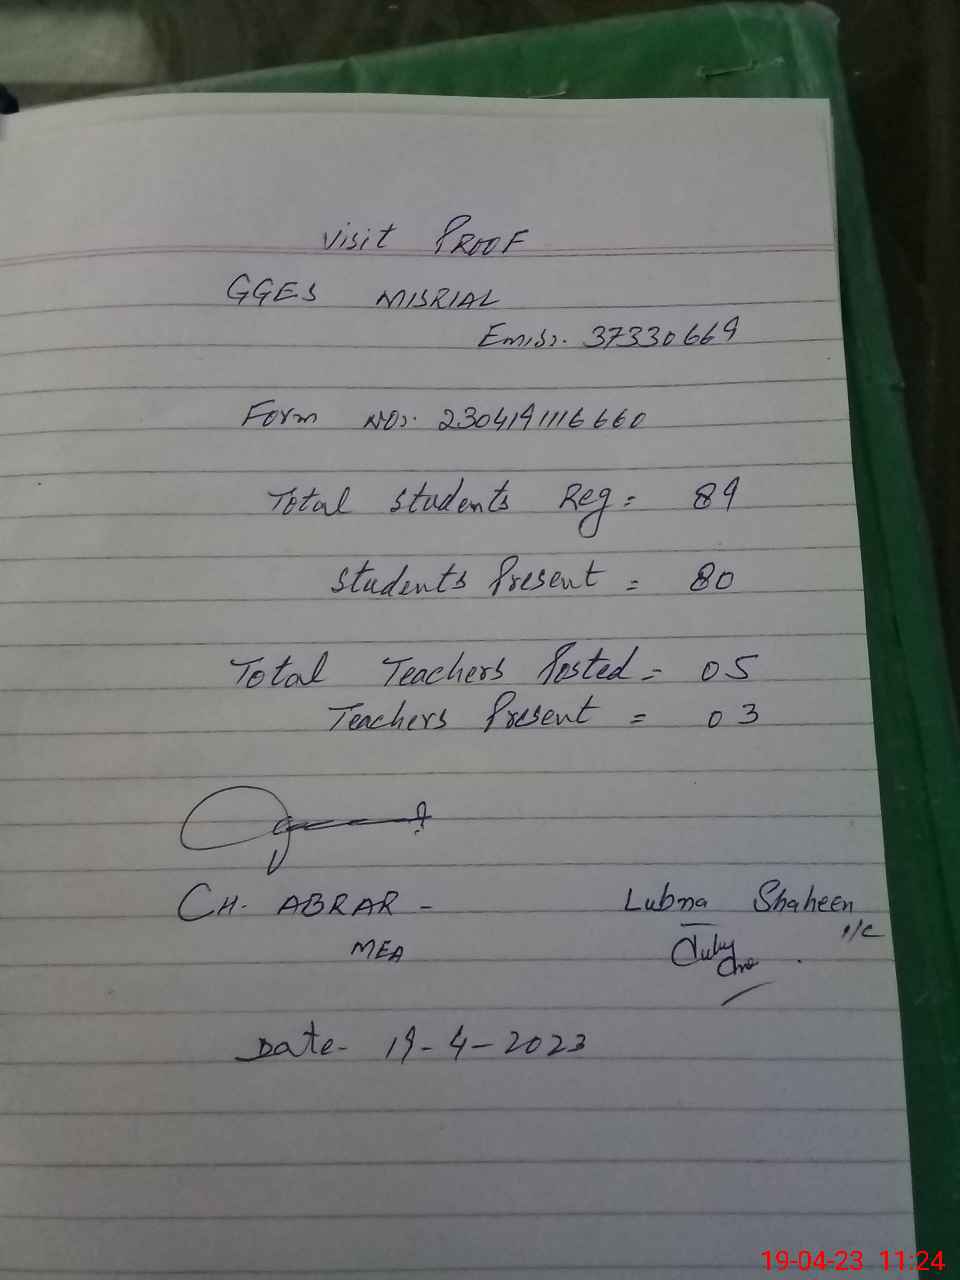 Visit PROOF
GGES MISRIAL
Emis:. 37330669
Form NO:. 2304191116660
Total Students Reg = 89
Students Present = 80
Total Teachers Posted = 05
Teachers Present = 03
CH. ABRAR -
MEA
Lubna Shaheen
I/C
Date - 19-4-2023
19-04-23 11:24